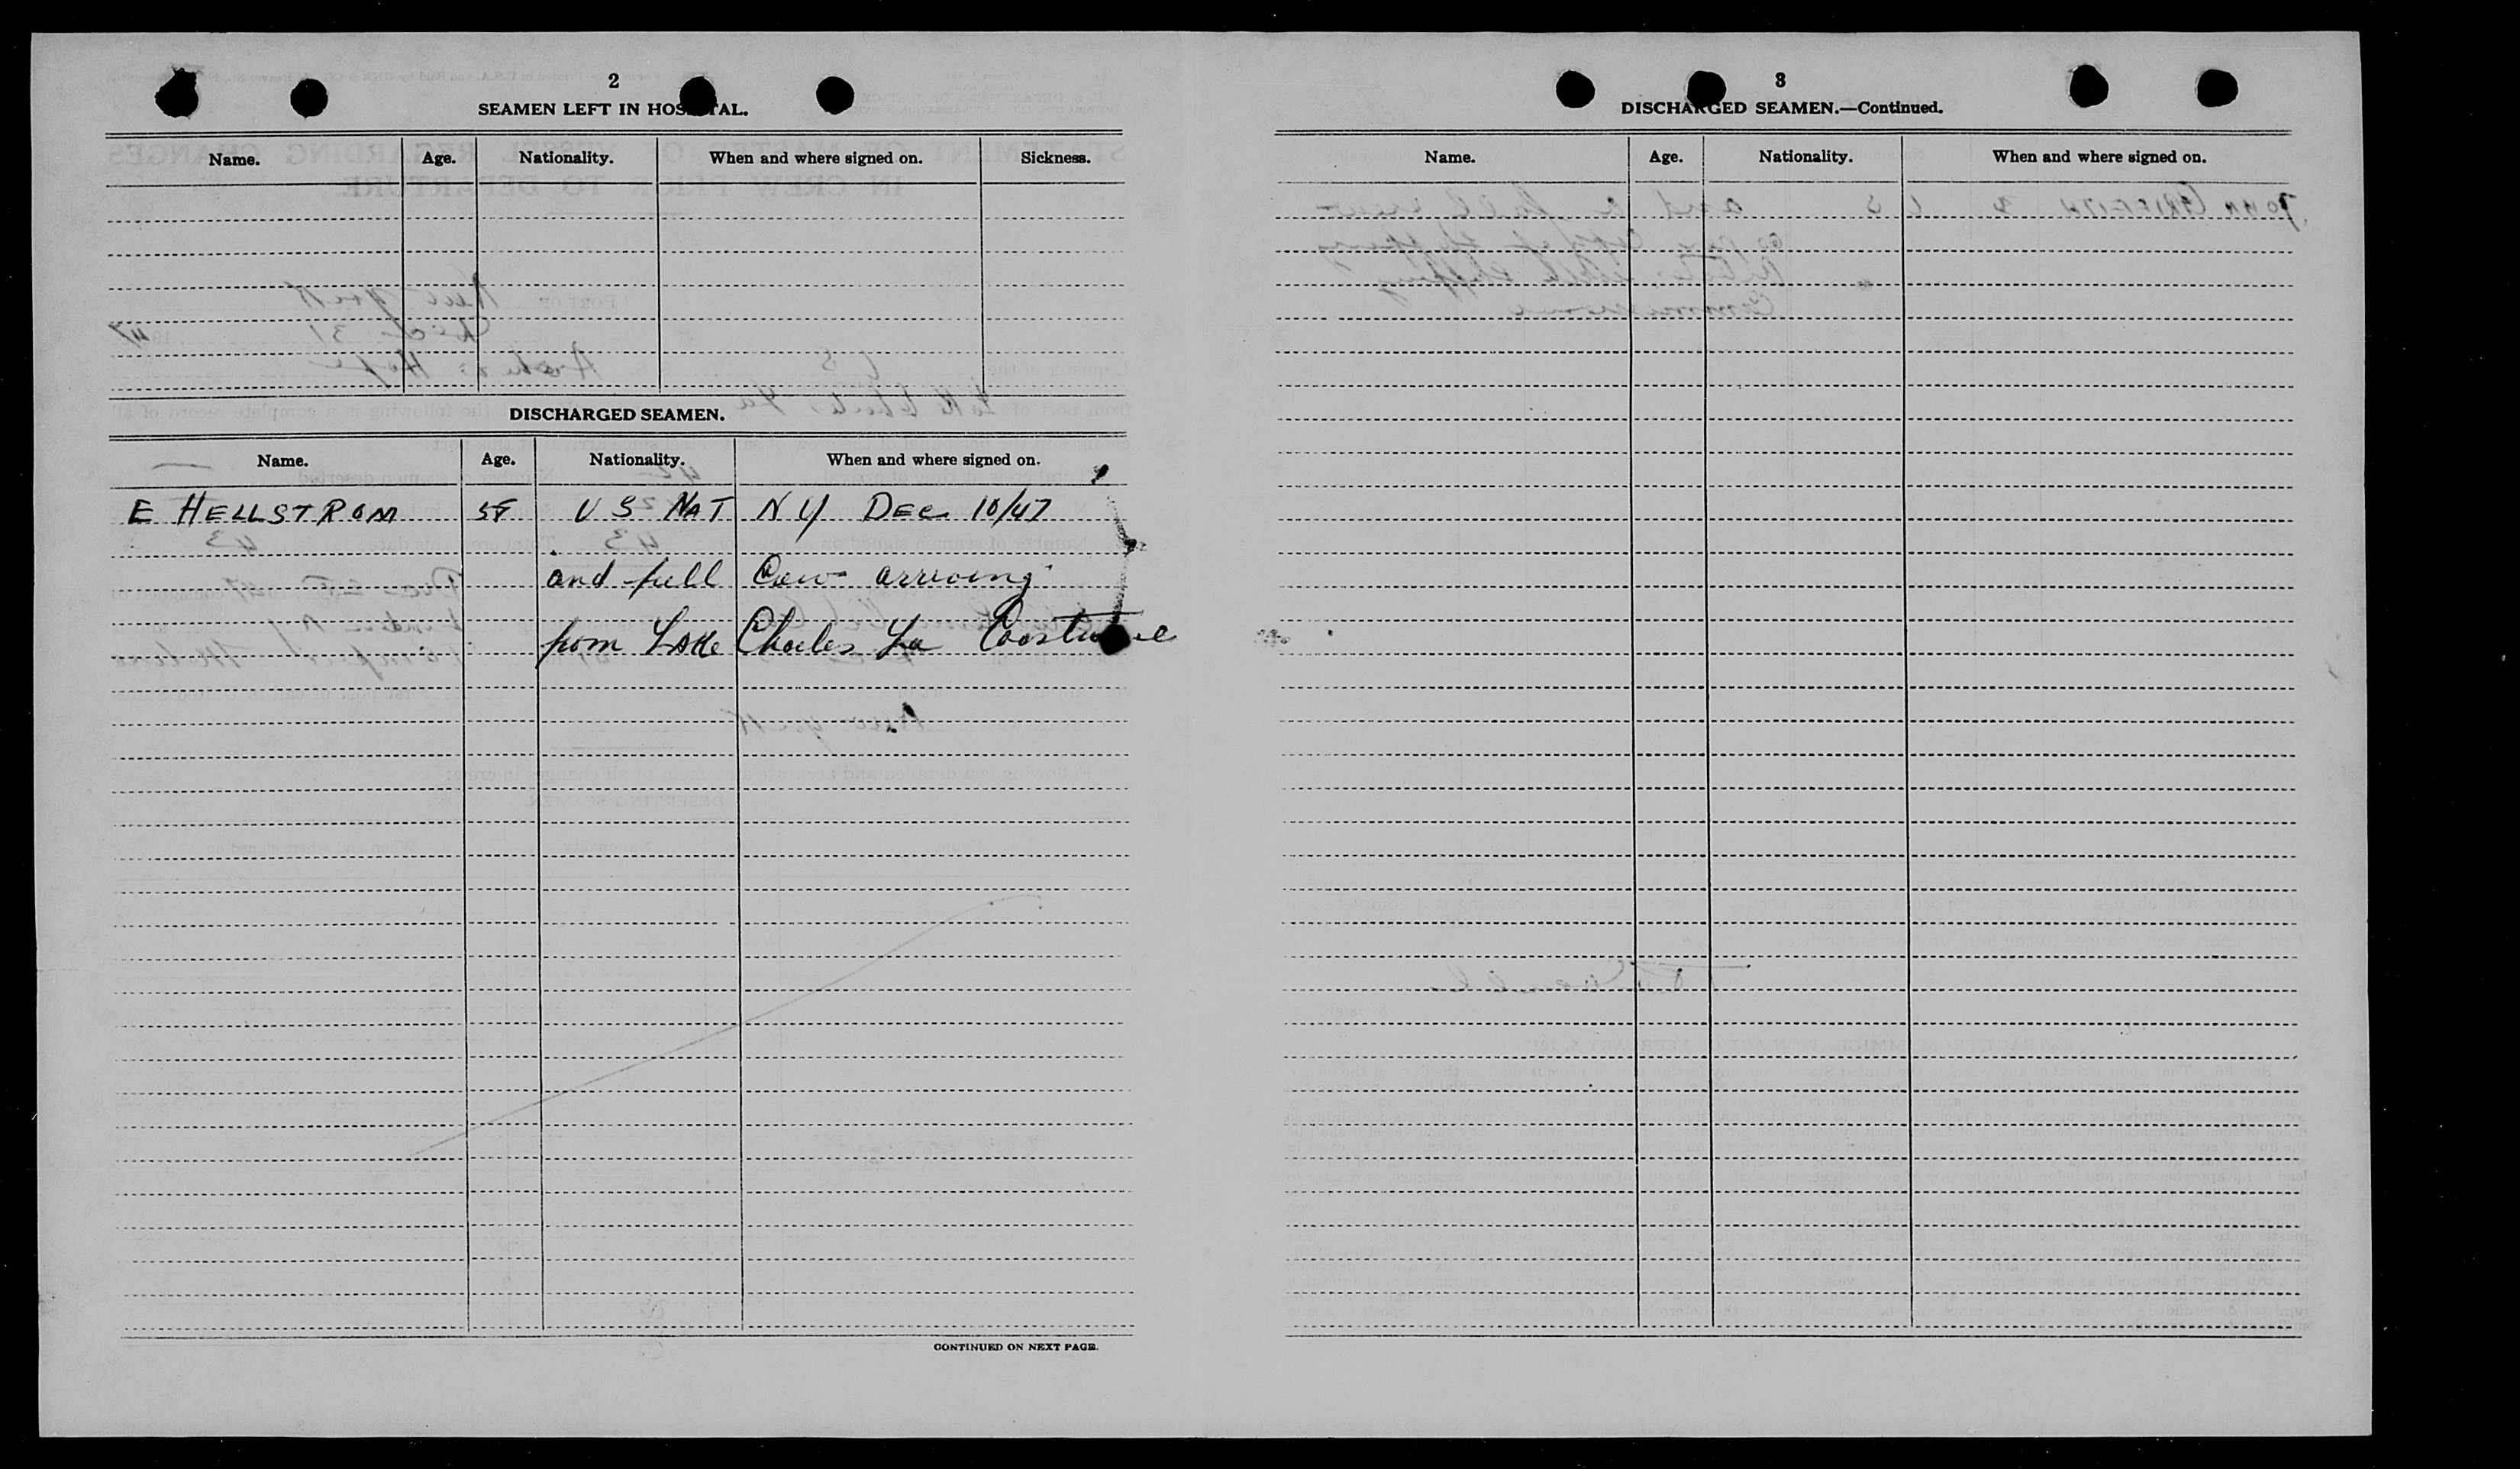 2
SEAMEN LEFT IN HOSPITAL.
Name. Age. Nationality. When and where signed on. Sickness.
DISCHARGED SEAMEN.
Name. Age. Nationality. When and where signed on.
E HELLSTROM U S NAT N Y DEC 10/47
and full Crew arriving
from Lake Charles La Coastwise
CONTINUED ON NEXT PAGE.
3
DISCHARGED SEAMEN.—Continued.
Name. Age. Nationality. When and where signed on.